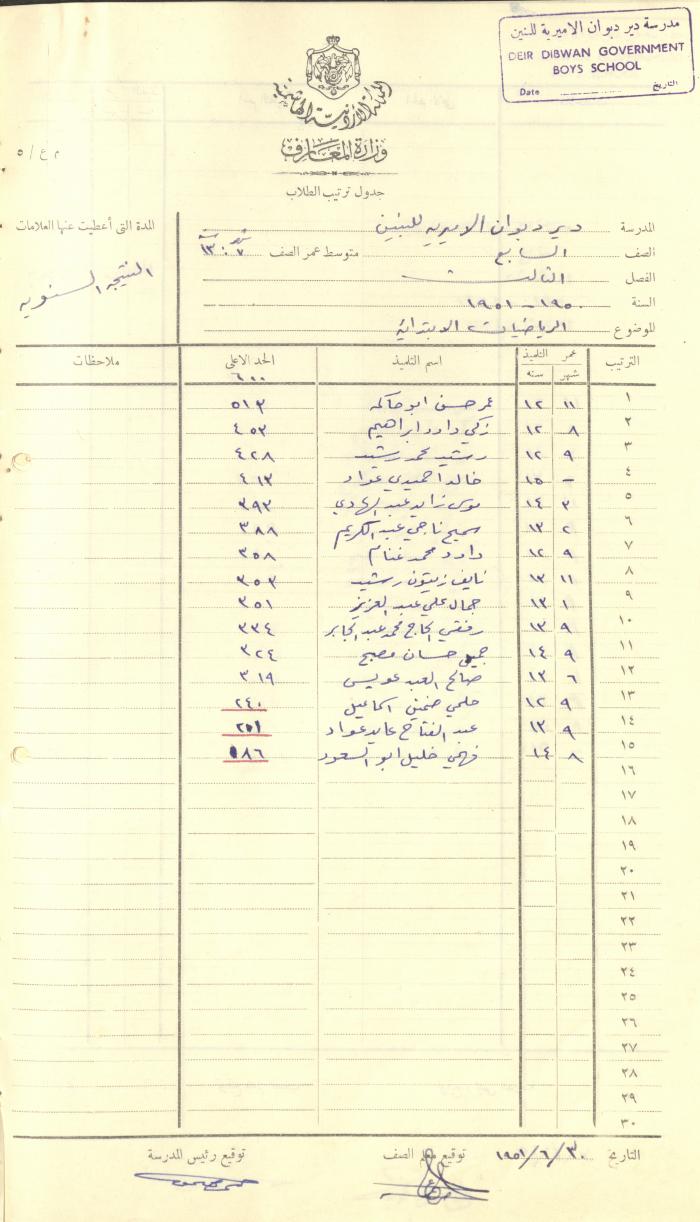 مدرسة دير دبوان الاميرية للبنين
DEIR DIBWAN GOVERNMENT
BOYS SCHOOL
Date التاريخ
المملكة الأردنية الهاشمية
وزارة المعارف
م ع / ٥
جدول ترتيب الطلاب
المدرسة دير دبوان الاميريه للبنين
الصف السابع متوسط عمر الصف ١٣.٧
الفصل الثالث
السنة ١٩٥٠ - ١٩٥١
الموضوع الرياضيات الابتدائية
المدة التى أعطيت عنها العلامات
النتيجه السنويه
الترتيب عمر التلميذ اسم التلميذ الحد الاعلى ملاحظات
شهر سنه ٦٠٠
١ ١١ ١٢ عمر حسن ابو حاكمه ٥١٣
٢ ٨ ١٢ زكي داود ابراهيم ٤٥٣
٣ ٩ ١٢ رشيد محمد رشيد ٤٢٨
٤ - ١٥ خالد احميدي عواد ٤١٣
٥ ٣ ١٤ موسى زايد عبد الهادي ٣٩٣
٦ ٢ ١٣ سميح ناجي عبد الكريم ٣٨٨
٧ ٩ ١٢ داود محمد غنام ٣٥٨
٨ ١١ ١٣ نايف زيتون رشيد ٣٥٣
٩ ١ ١٣ جمال علي عبد العزيز ٣٥١
١٠ ٩ ١٣ رفقي الحاج محمد عبد الجابر ٣٣٤
١١ ٩ ١٤ جميل حسان مصبح ٣٢٤
١٢ ٦ ١٣ صالح العبد عويس ٣١٩
١٣ ٩ ١٢ حلمي اسماعيل ٢٤٠
١٤ ٩ ١٣ عبد الفتاح عايد عواد ٢٥١
١٥ ٨ ١٤ فهمي خليل ابو السعود ١٨٦
١٦
١٧
١٨
١٩
٢٠
٢١
٢٢
٢٣
٢٤
٢٥
٢٦
٢٧
٢٨
٢٩
٣٠
التاريخ ٣٠/٦/١٩٥١ توقيع معلم الصف توقيع رئيس المدرسة